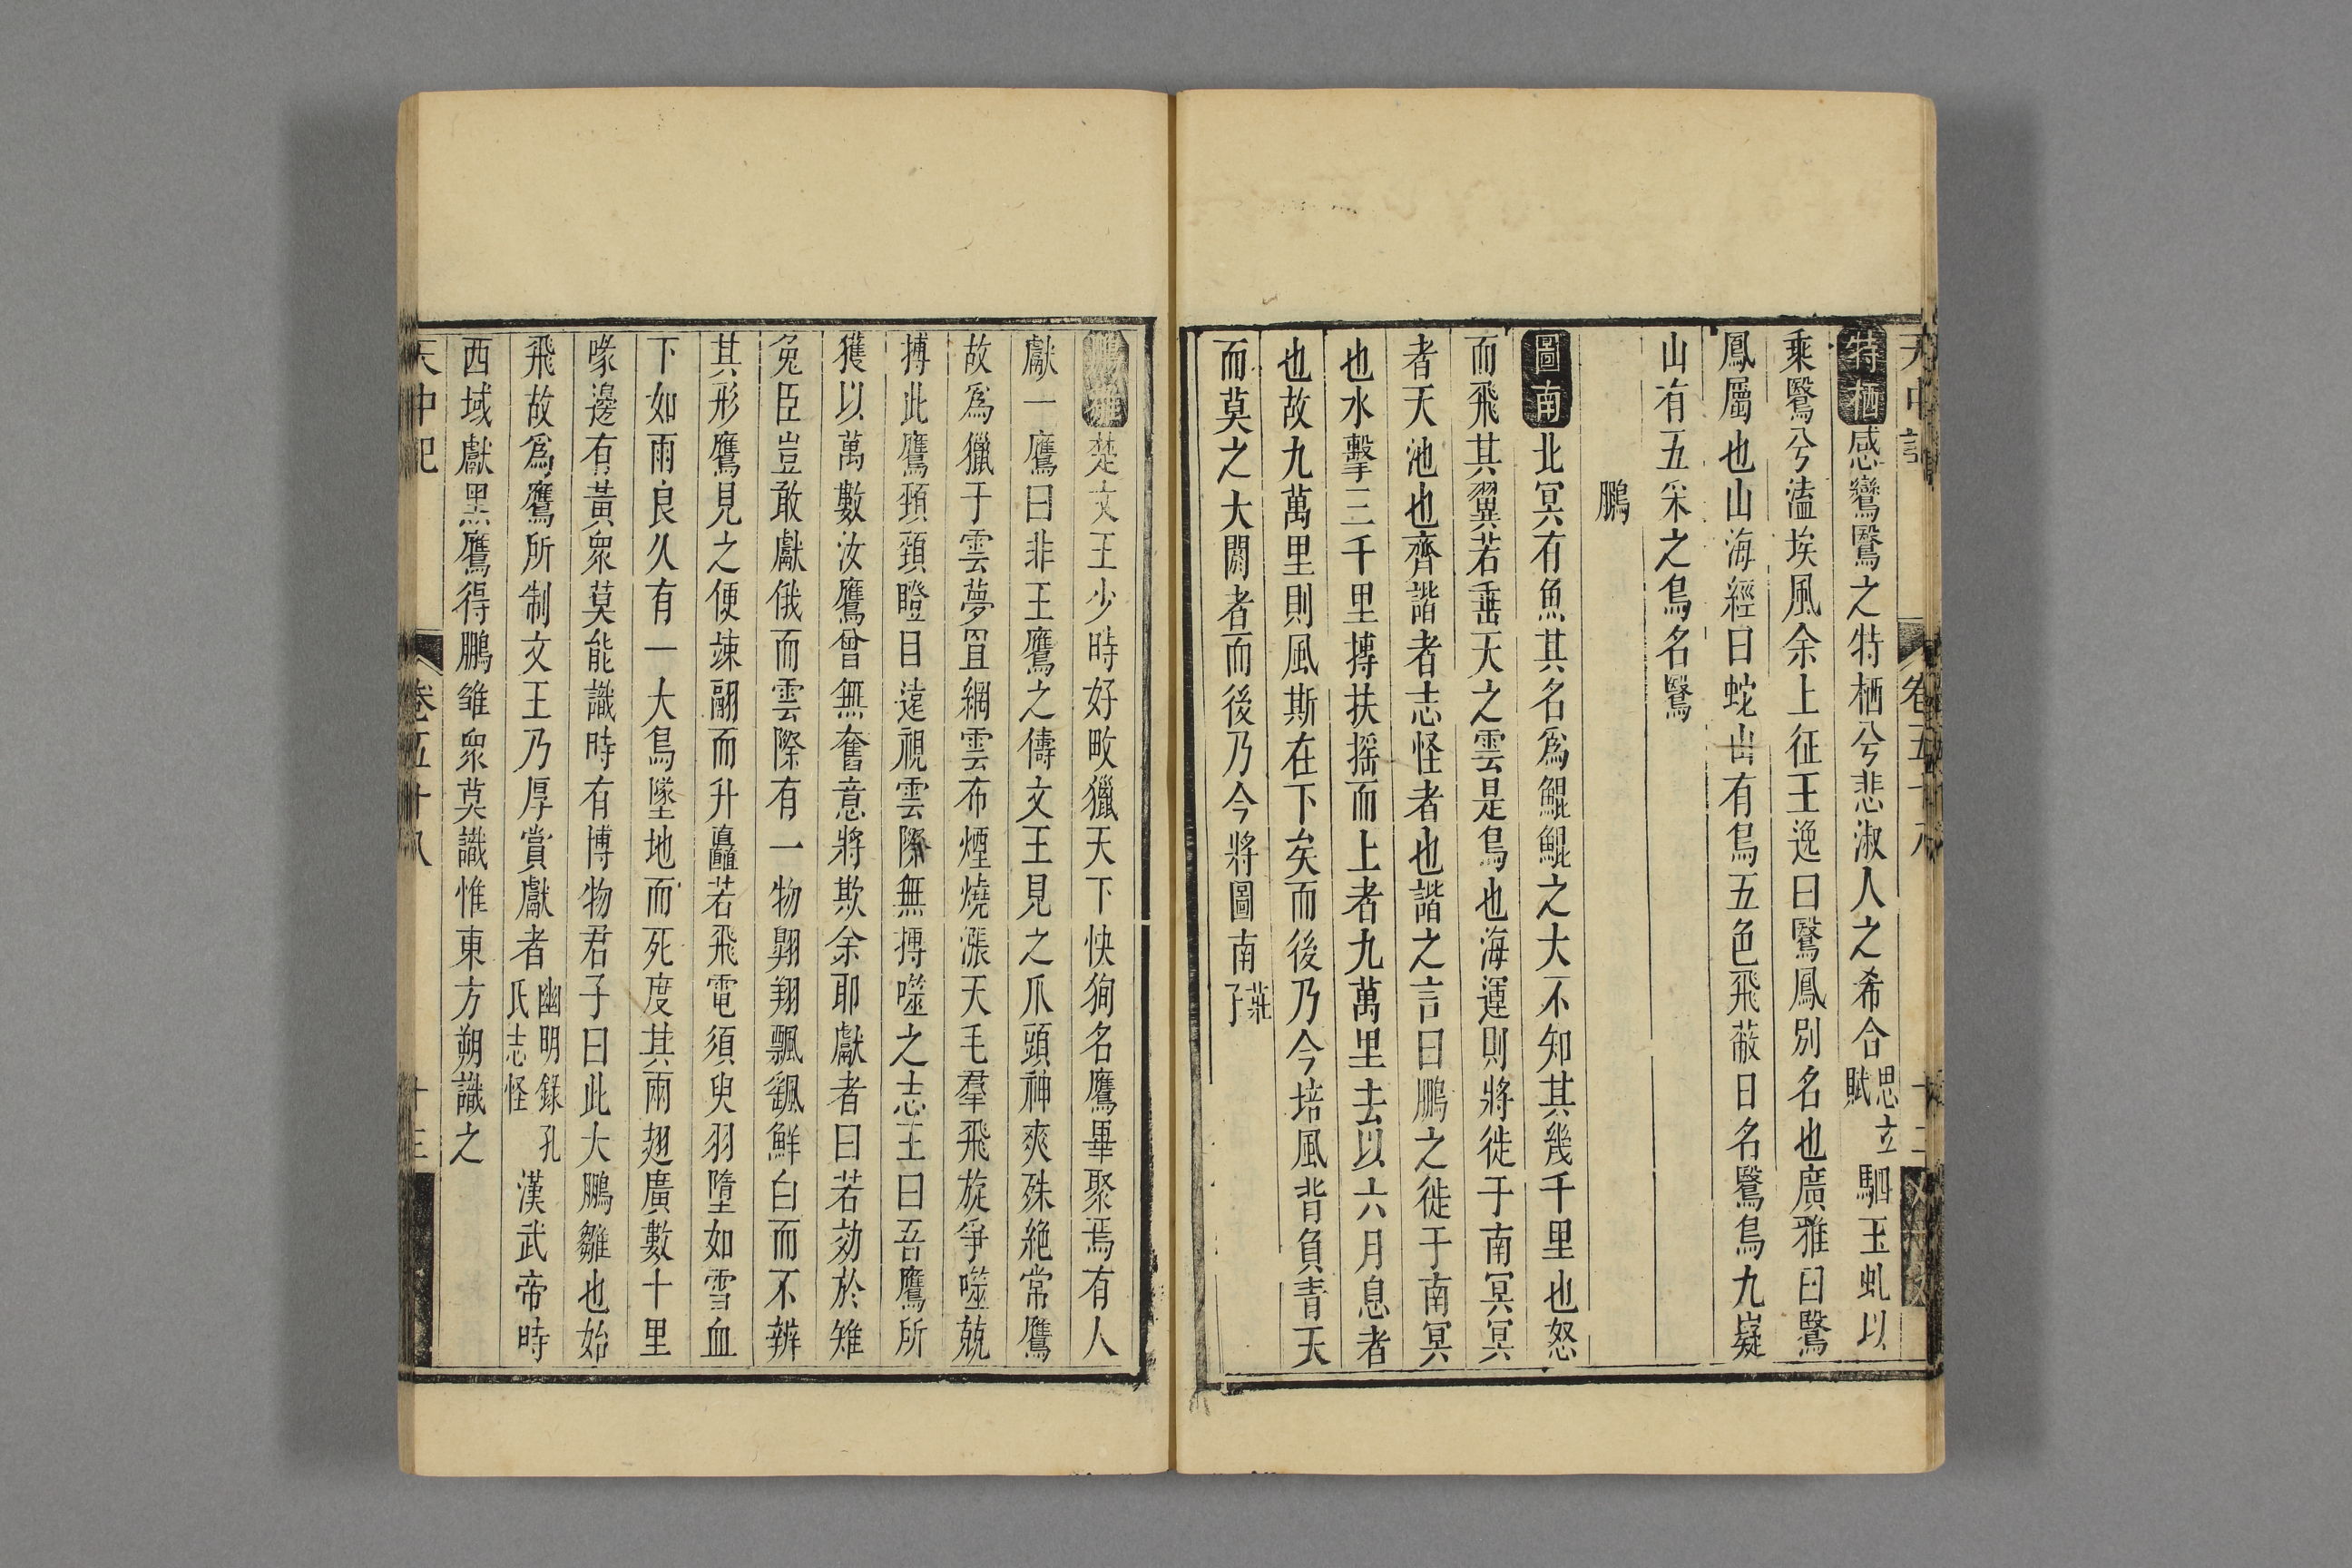 特栖感鸞鷖之特栖兮悲淑人之希合思玄賦駟玉虬以
乘鷖兮溘埃風余上征王逸曰鷖鳳別名也廣雅曰鷖
鳳屬也山海經曰蛇山有鳥五色飛蔽日名鷖鳥九嶷
山有五采之鳥名鷖
鵬
圖南北冥有魚其名爲鯤鯤之大不知其幾千里也怒
而飛其翼若垂天之雲是鳥也海運則將徙于南冥冥
者天池也齊諧者志怪者也諧之言曰鵬之徙于南冥
也水擊三千里摶扶摇而上者九萬里去以六月息者
也故九萬里則風斯在下矣而後乃今培風背負青天
而莫之大閼者而後乃今將圖南莊子
鵬雛楚文王少時好畋獵天下快狥名鷹畢聚焉有人
獻一鷹曰非王鷹之儔文王見之爪頭神爽殊絶常鷹
故爲獵于雲夢罝網雲布煙燒漲天毛羣飛旋爭噬兢
搏此鷹頸頸瞪目遠視雲際無搏噬之志王曰吾鷹所
獲以萬數汝鷹曾無奮意將欺余耶獻者曰若効於雉
兔臣豈敢獻俄而雲際有一物翱翔飄颻鮮白而不辨
其形鷹見之便竦翮而升矗若飛電須臾羽墮如雪血
下如雨良久有一大鳥墜地而死度其兩翅廣數十里
喙邊有黃衆莫能識時有博物君子曰此大鵬雛也始
飛故爲鷹所制文王乃厚賞獻者幽明錄孔氏志怪漢武帝時
西域獻黑鷹得鵬雏衆莫識惟東方朔識之
天中記 卷五十八 十三